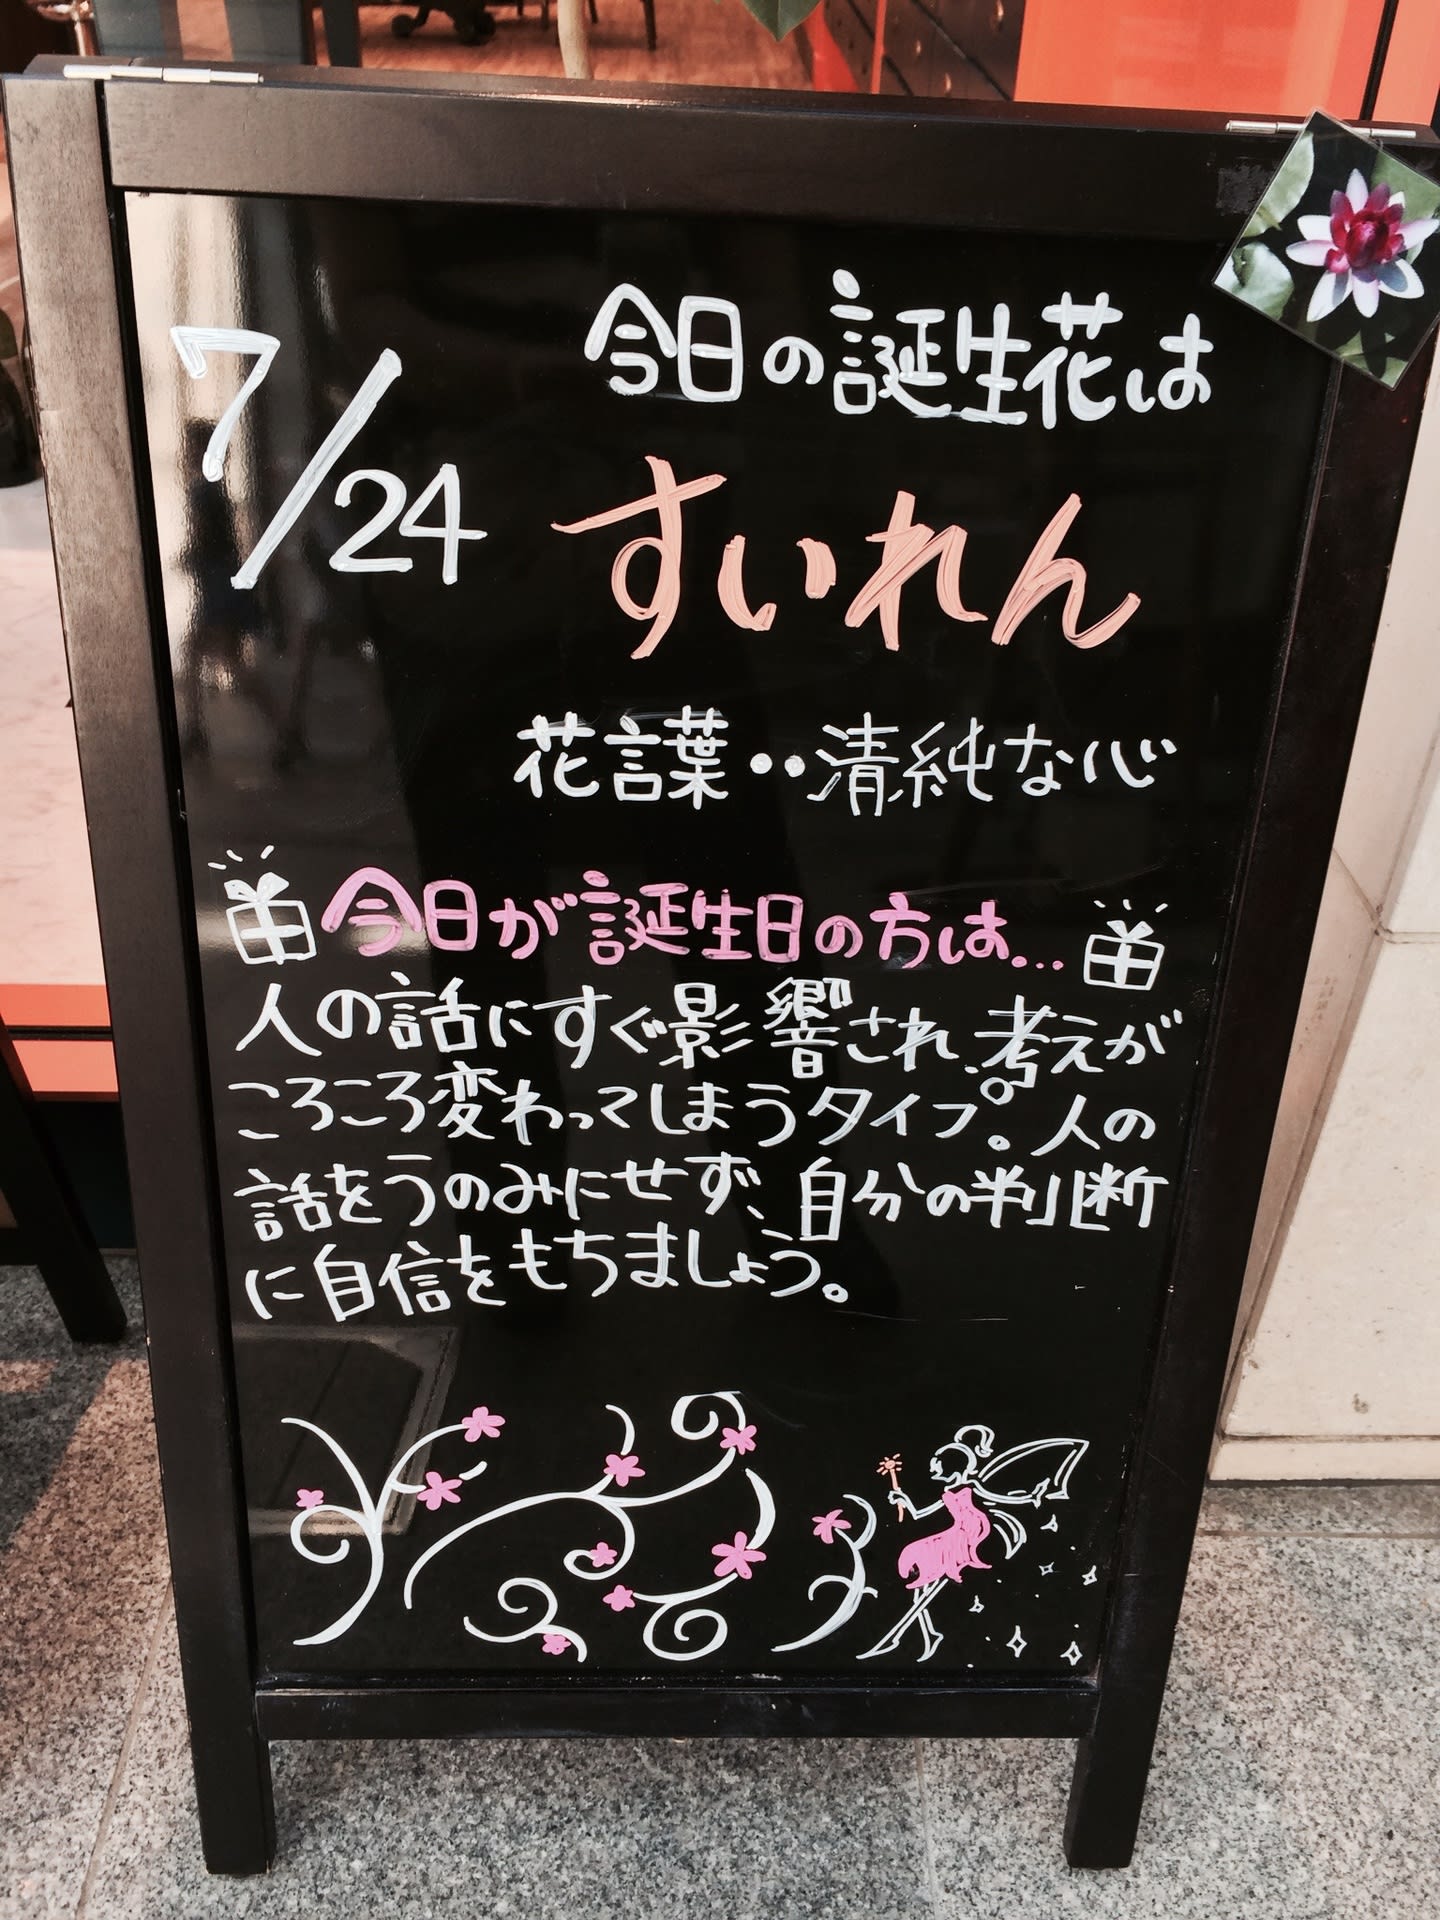 7/24
今日の誕生花は
すいれん
花言葉‥清純な心
今日が誕生日の方は…
人の話にすぐ影響され、考えが
ころころ変わってしまうタイプ。人の
話をうのみにせず、自分の判断
に自信をもちましょう。